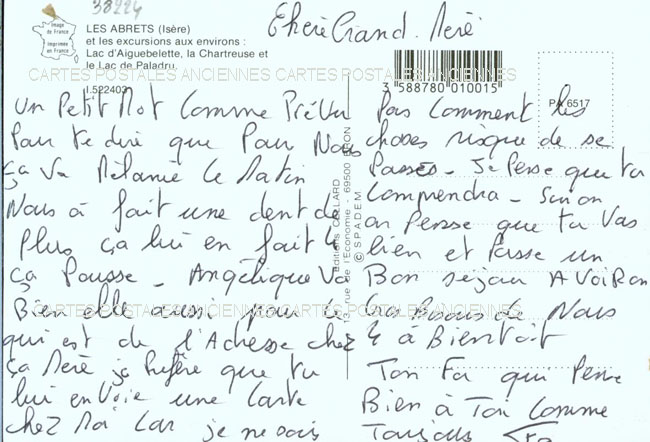 38224
Image
de France
Imprimée
en France
LES ABRETS (Isère)
et les excursions aux environs :
Lac d'Aiguebelette, la Chartreuse et
le Lac de Paladru.
I.522403
Chère Grand. Mère
3 588780 010015
PA 6517
CARTES POSTALES ANCIENNES CARTES POSTALES ANCIENNES
Un Petit Mot Comme Prévu
Pour te dire que Pour Nous
ça va Mélanie Le Matin
Nous à fait une dent de
Plus ça lui en fait 4
ça Pousse - Angélique Va
Bien elle aussi pour ce
qui est de l'Adresse chez
ça Mère je préfère que tu
lui envoie une Carte
chez Moi Car je ne sais
Editions CELLARD
rue de l'Economie - 69500 BRON
© SPADEM
Pas Comment les
choses risque de se
Passés - Je Pense que tu
Comprendra - Sinon
on Pensse que tu Vas
bien et Passe un
Bon séjour A Voiron
Gros Bisous de Nous
4 à Bientot
Ton Fa qui Pense
Bien à Toi Comme
Toujours
CARTES POSTALES ANCIENNES CARTES POSTALES ANCIENNES